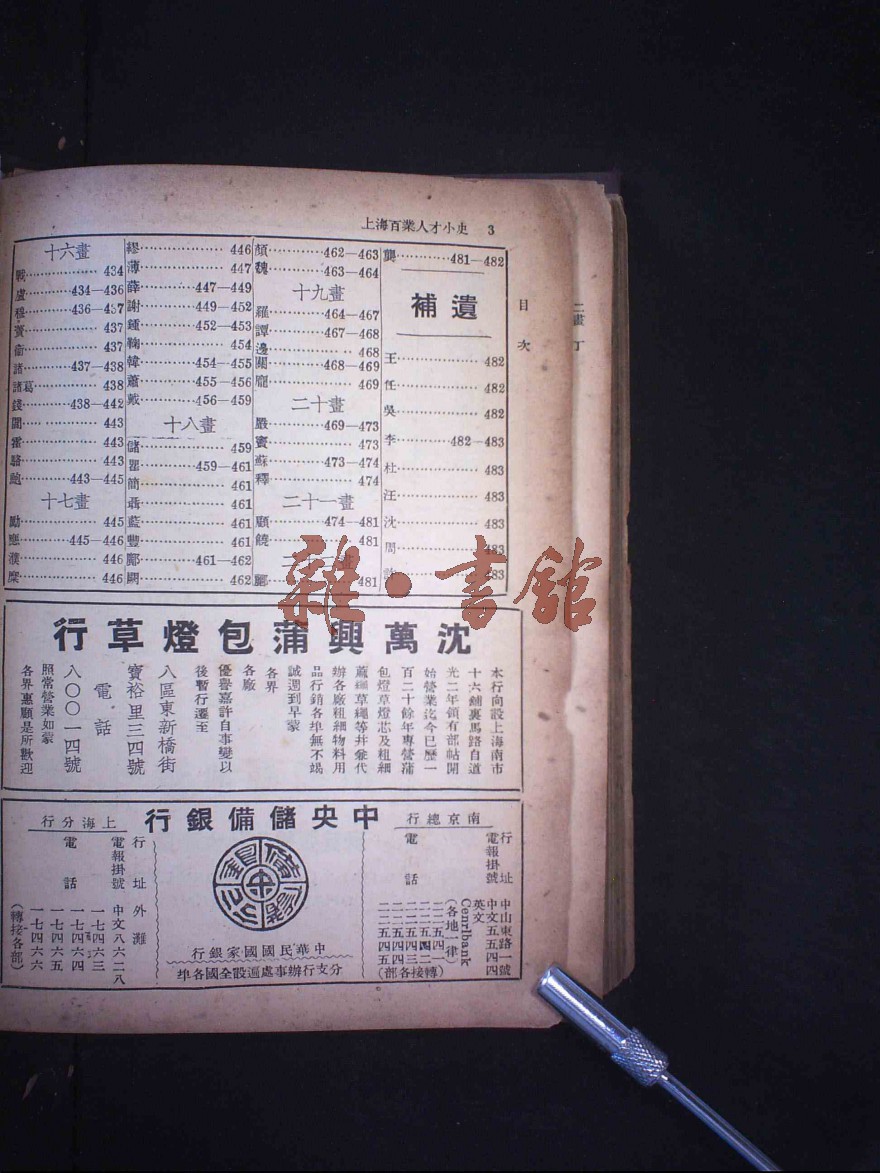 上海百業人才小史 3
目次
十六畫
戰 434
盧 434—436
穆 436—437
賴 437
衞 437
諸 437—438
諸葛 438
錢 438—442
閻 443
霍 443
駱 443
鮑 443—445
十七畫
勵 445
應 445—446
濮 446
糜 446
繆 446
薄 447
薛 447—449
謝 449—452
鍾 452—453
鞠 454
韓 454—455
蕭 455—456
戴 456—459
十八畫
儲 459
瞿 459—461
簡 461
聶 461
藍 461
豐 461
鄺 461—462
闕 462
顏 462—463
魏 463—464
十九畫
羅 464—467
譚 467—468
邊 468
關 468—469
龐 469
二十畫
嚴 469—473
竇 473
蘇 473—474
釋 474
二十一畫
顧 474—481
饒 481
酈 481
龔 481—482
補遺
王 482
任 482
吳 482
李 482—483
杜 483
汪 483
沈 483
周 483
483
沈萬興蒲包燈草行
本行向設上海南市
十六鋪裏馬路自道
光二年領有部帖開
始營業迄今已歷一
百二十餘年專營蒲
包燈草燈芯及粗細
蔴繩草繩等并兼代
辦各廠粗細物料用
品行銷各埠無不竭
誠週到早蒙
各界
各廠
優譽嘉許自事變以
後暫行遷至
八區東新橋街
寶裕里三四號
電話
八〇〇一四號
照常營業如蒙
各界惠顧是所歡迎
中央儲備銀行
南京總行
行址 中山東路一號
電報掛號 中文五五四四
英文 Cenrlbank
(各地一律)
電話
(轉接各部)
中華民國國家銀行
分支行辦事處遍設全國各埠
上海分行
行址 外灘
電報掛號 中文八六二八
電話 一七四六三
一七四六四
一七四六五
一七四六六
(轉接各部)
二畫 丁
雜·書館